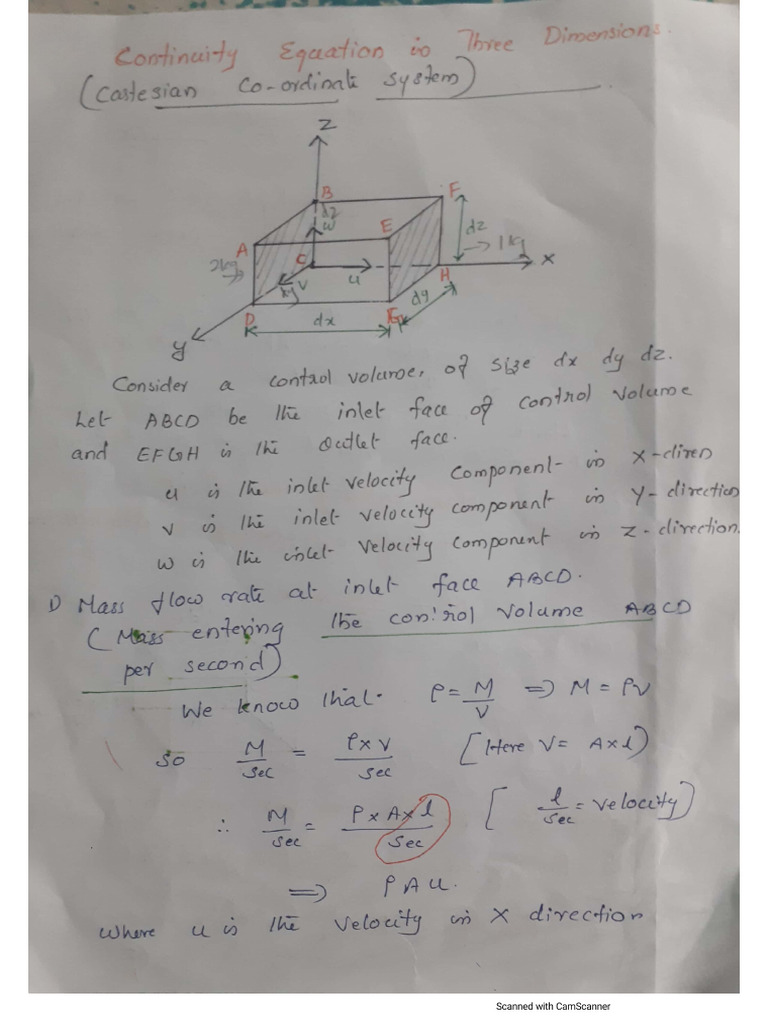 Continuity Equation in Three Dimensions.
(Cartesian Co-ordinate system)
Z
B
F
dz
w
E
dz
A
2kg
C
→ 1 kg
X
u
H
v
dy
dy
D
dx
G
y
Consider a control volume, of size dx dy dz.
Let ABCD be the inlet face of control volume
and EFGH is the outlet face.
u is the inlet velocity component in X-diren
v is the inlet velocity component in Y-direction
w is the inlet velocity component in Z-direction.
1) Mass flow rate at inlet face ABCD.
(Mass entering the control volume ABCD
per second)
We know that. ρ = M/V => M = ρV
so M/sec = ρ x V/sec [Here V = A x l)
∴ M/sec = ρ x A x l/sec [ l/sec = velocity)
=> ρ A u.
where u is the velocity in X direction
Scanned with CamScanner